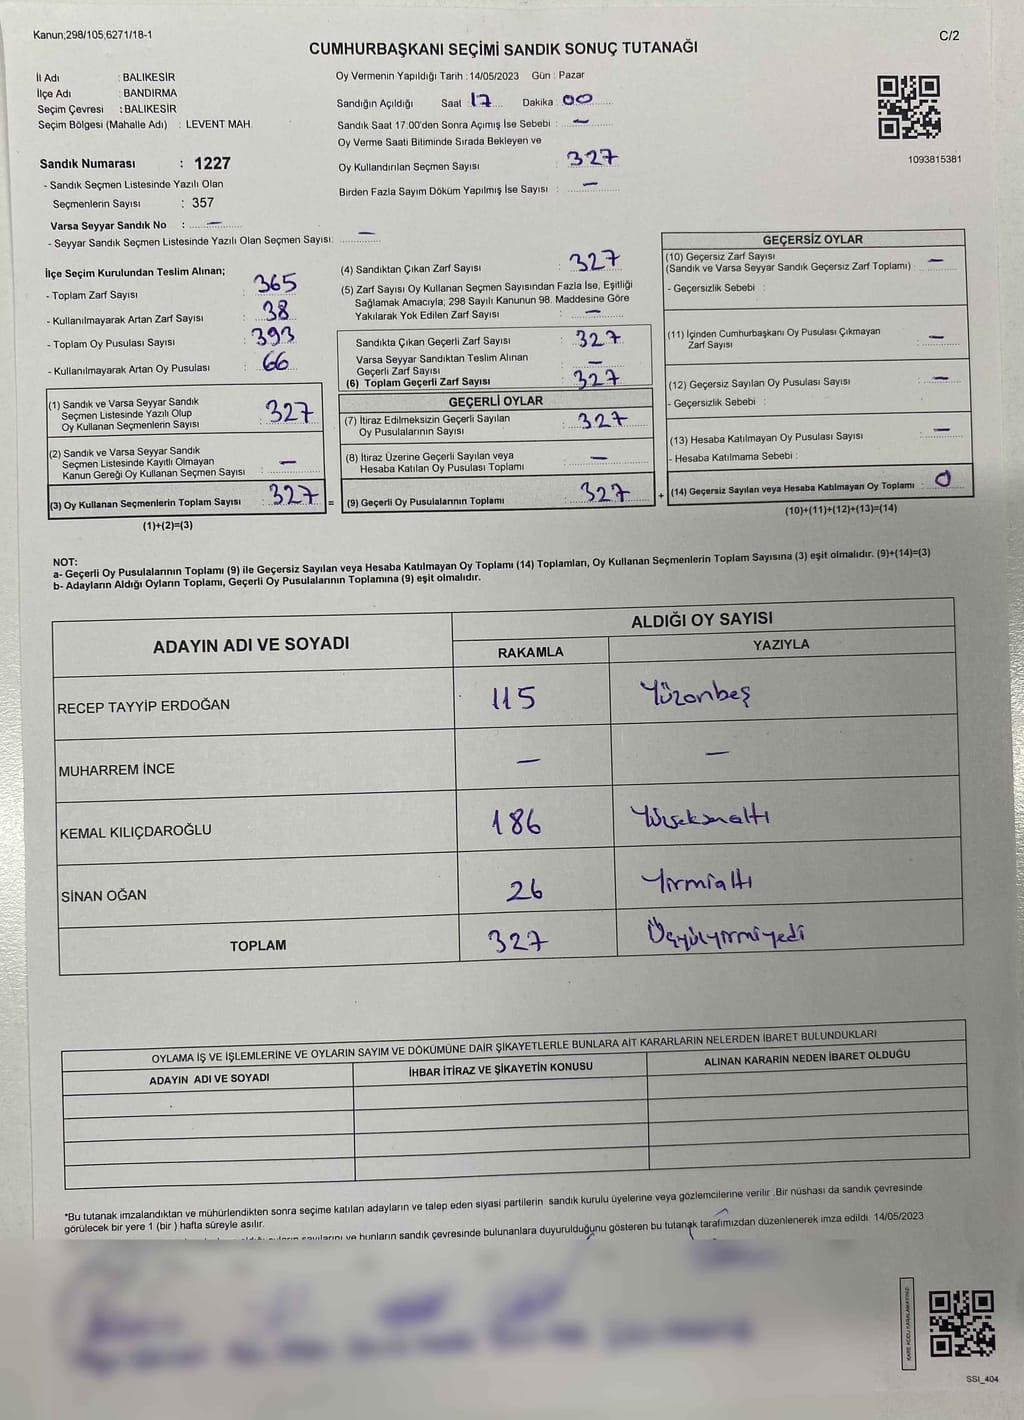 Kanun;298/105,6271/18-1
C/2
CUMHURBAŞKANI SEÇİMİ SANDIK SONUÇ TUTANAĞI
İl Adı : BALIKESİR
İlçe Adı : BANDIRMA
Seçim Çevresi : BALIKESİR
Seçim Bölgesi (Mahalle Adı) : LEVENT MAH.
Sandık Numarası : 1227
- Sandık Seçmen Listesinde Yazılı Olan
Seçmenlerin Sayısı : 357
Varsa Seyyar Sandık No : —
- Seyyar Sandık Seçmen Listesinde Yazılı Olan Seçmen Sayısı: —
Oy Vermenin Yapıldığı Tarih : 14/05/2023 Gün : Pazar
Sandığın Açıldığı Saat : 17 Dakika : 00
Sandık Saat 17:00'den Sonra Açımış İse Sebebi : —
Oy Verme Saati Bitiminde Sırada Bekleyen ve
Oy Kullandırılan Seçmen Sayısı : 327
Birden Fazla Sayım Döküm Yapılmış İse Sayısı : —
1093815381
İlçe Seçim Kurulundan Teslim Alınan;
- Toplam Zarf Sayısı : 365
- Kullanılmayarak Artan Zarf Sayısı : 38
- Toplam Oy Pusulası Sayısı : 393
- Kullanılmayarak Artan Oy Pusulası : 66
(1) Sandık ve Varsa Seyyar Sandık
Seçmen Listesinde Yazılı Olup
Oy Kullanan Seçmenlerin Sayısı : 327
(2) Sandık ve Varsa Seyyar Sandık
Seçmen Listesinde Kayıtlı Olmayan
Kanun Gereği Oy Kullanan Seçmen Sayısı : —
(3) Oy Kullanan Seçmenlerin Toplam Sayısı : 327 =
(1)+(2)=(3)
(4) Sandıktan Çıkan Zarf Sayısı : 327
(5) Zarf Sayısı Oy Kullanan Seçmen Sayısından Fazla İse, Eşitliği
Sağlamak Amacıyla; 298 Sayılı Kanunun 98. Maddesine Göre
Yakılarak Yok Edilen Zarf Sayısı : —
Sandıkta Çıkan Geçerli Zarf Sayısı : 327
Varsa Seyyar Sandıktan Teslim Alınan
Geçerli Zarf Sayısı : —
(6) Toplam Geçerli Zarf Sayısı : 327
GEÇERLİ OYLAR
(7) İtiraz Edilmeksizin Geçerli Sayılan
Oy Pusulalarının Sayısı : 327
(8) İtiraz Üzerine Geçerli Sayılan veya
Hesaba Katılan Oy Pusulası Toplamı : —
(9) Geçerli Oy Pusulalarının Toplamı : 327 +
GEÇERSİZ OYLAR
(10) Geçersiz Zarf Sayısı
(Sandık ve Varsa Seyyar Sandık Geçersiz Zarf Toplamı) : —
- Geçersizlik Sebebi :
(11) İçinden Cumhurbaşkanı Oy Pusulası Çıkmayan
Zarf Sayısı : —
(12) Geçersiz Sayılan Oy Pusulası Sayısı : —
- Geçersizlik Sebebi :
(13) Hesaba Katılmayan Oy Pusulası Sayısı : —
- Hesaba Katılmama Sebebi :
(14) Geçersiz Sayılan veya Hesaba Katılmayan Oy Toplamı : 0
(10)+(11)+(12)+(13)=(14)
NOT:
a- Geçerli Oy Pusulalarının Toplamı (9) ile Geçersiz Sayılan veya Hesaba Katılmayan Oy Toplamı (14) Toplamları, Oy Kullanan Seçmenlerin Toplam Sayısına (3) eşit olmalıdır. (9)+(14)=(3)
b- Adayların Aldığı Oyların Toplamı, Geçerli Oy Pusulalarının Toplamına (9) eşit olmalıdır.
ADAYIN ADI VE SOYADI
ALDIĞI OY SAYISI
RAKAMLA YAZIYLA
RECEP TAYYİP ERDOĞAN 115 Yüzonbeş
MUHARREM İNCE — —
KEMAL KILIÇDAROĞLU 186 Yüzseksenaltı
SİNAN OĞAN 26 Yirmialtı
TOPLAM 327 Üçyüzyirmiyedi
OYLAMA İŞ VE İŞLEMLERİNE VE OYLARIN SAYIM VE DÖKÜMÜNE DAİR ŞİKAYETLERLE BUNLARA AİT KARARLARIN NELERDEN İBARET BULUNDUKLARI
ADAYIN ADI VE SOYADI İHBAR İTİRAZ VE ŞİKAYETİN KONUSU ALINAN KARARIN NEDEN İBARET OLDUĞU
*Bu tutanak imzalandıktan ve mühürlendikten sonra seçime katılan adayların ve talep eden siyasi partilerin sandık kurulu üyelerine veya gözlemcilerine verilir .Bir nüshası da sandık çevresinde
görülecek bir yere 1 (bir ) hafta süreyle asılır.
sayılarını ve bunların sandık çevresinde bulunanlara duyurulduğunu gösteren bu tutanak tarafımızdan düzenlenerek imza edildi. 14/05/2023
SSI_404